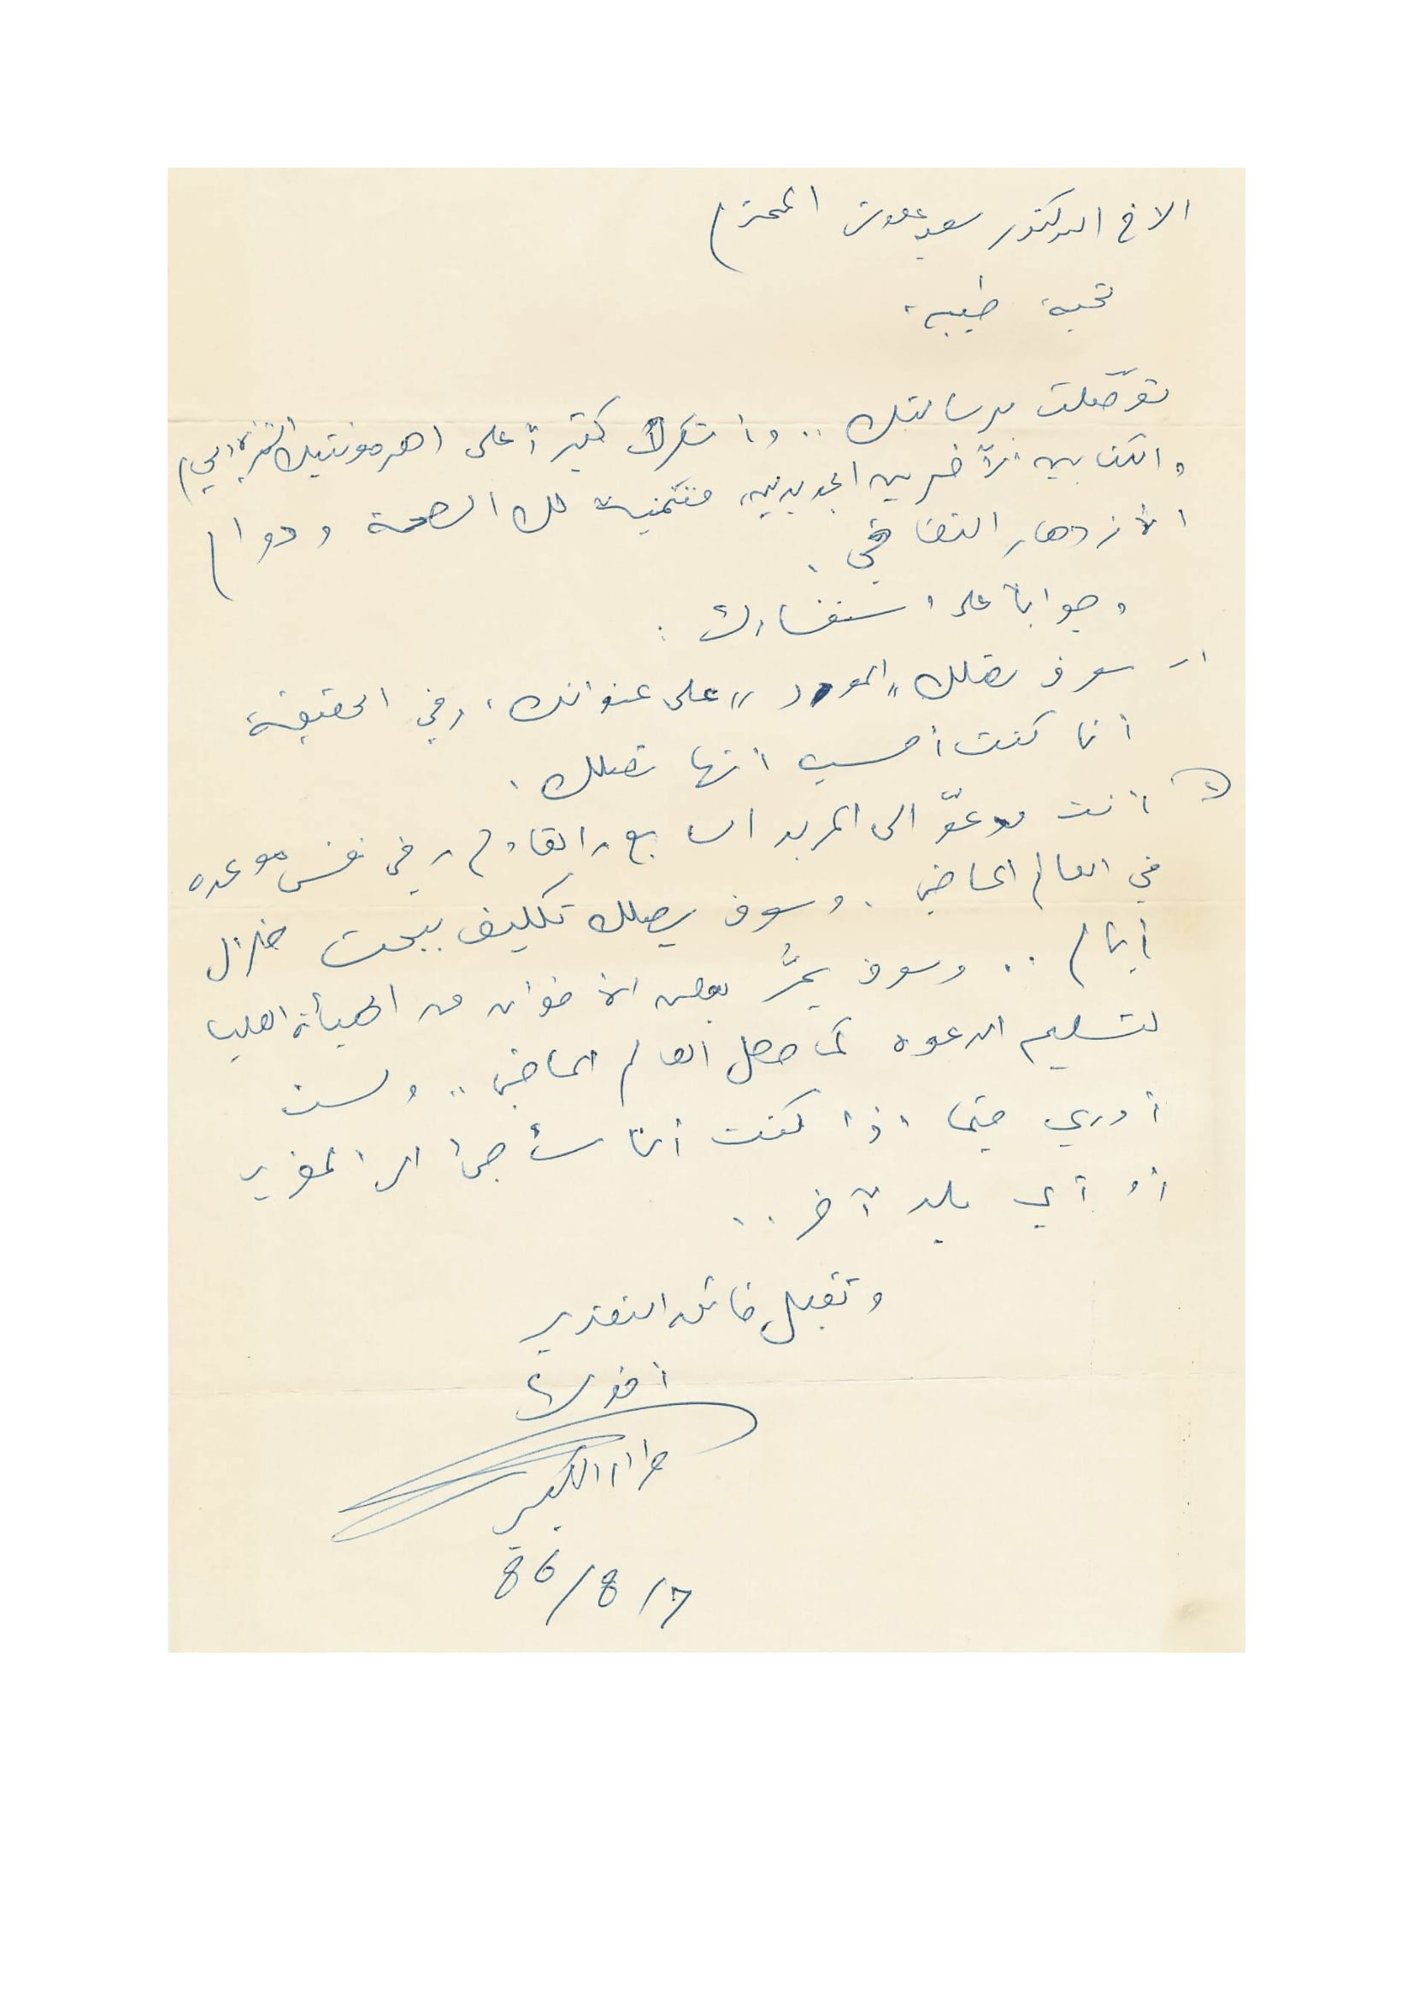 الاخ الدكتور سعيد علوش المحترم
تحية طيبة،
توصّلت برسالتك .. وأشكرك كثيراً على اهرمونتيك النثر الأدبي،
والكتابين الآخرين الجديدين، متمنياً لك الصحة ودوام
الأزدهار الثقافي.
وجواباً على استفسارك :
١ـ سوف تصلك "المورد" على عنوانك، وفي الحقيقة
أنا كنت أحسب أنها تصلك.
٢ـ أنت مدعوّ الى المربد السابع، القادم، في نفس موعده
في العام الماضي. وسوف يصلك تكليف ببحث خلال
أيام .. وسوف يمرُّ بعض الأخوان من الهيأة العليا
لتسليم الدعوة كما حصل العام الماضي .. ولست
أدري فيما اذا كنت أنا سأجيء الى المغرب
أو أي بلد آخر ..
وتقبل فائق التقدير
أخوك
طراد الكبيسي
86/8/7